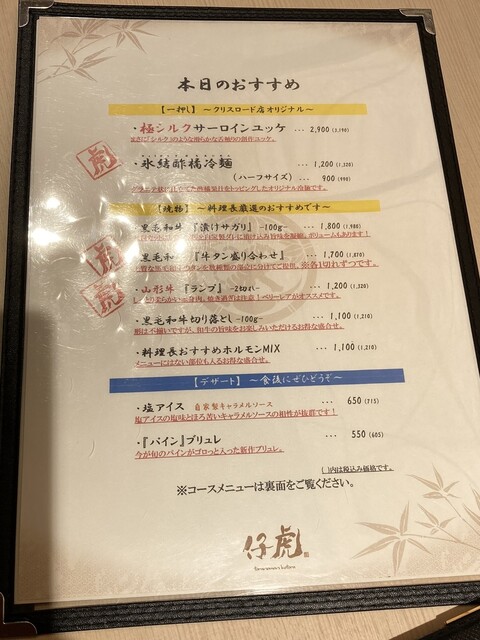 本日のおすすめ
【一押し】 ～クリスロード店オリジナル～
・極シルクサーロインユッケ … 2,900 (3,190)
まさに「シルク」のような滑らかな舌触りの創作ユッケ。
虎
・氷結酢橘冷麺 … 1,200 (1,320)
(ハーフサイズ) … 900 (990)
トッピングしたオリジナル冷麺です。
【焼物】 ～料理長厳選のおすすめです～
・黒毛和牛 『漬けサガリ』 -100g- … 1,800 (1,980)
に漬け込み旨味を凝縮。ボリュームもあります！
虎
・黒毛和 『牛タン盛り合わせ』 … 1,700 (1,870)
タンを数種類の部位に分けてご提供。※各1切れずつです。
虎
・山形牛 『ランプ』 -2切れ- … 1,200 (1,320)
しっとりやわらかい赤身肉。焼き過ぎは注意！ベリーレアがオススメです。
・黒毛和牛切り落とし -100g- … 1,100 (1,210)
形は不揃いですが、和牛の旨味をお楽しみいただけるお得な盛合せ。
・料理長おすすめホルモンMIX … 1,100 (1,210)
メニューにはない部位も入るお得な盛合せ。
【デザート】 ～食後にぜひどうぞ～
・塩アイス 自家製キャラメルソース … 650 (715)
塩アイスの塩味とほろ苦いキャラメルソースの相性が抜群です！
・『パイン』ブリュレ … 550 (605)
今が旬のパインがゴロっと入った新作ブリュレ。
( )内は税込み価格です。
※コースメニューは裏面をご覧ください。
仔虎